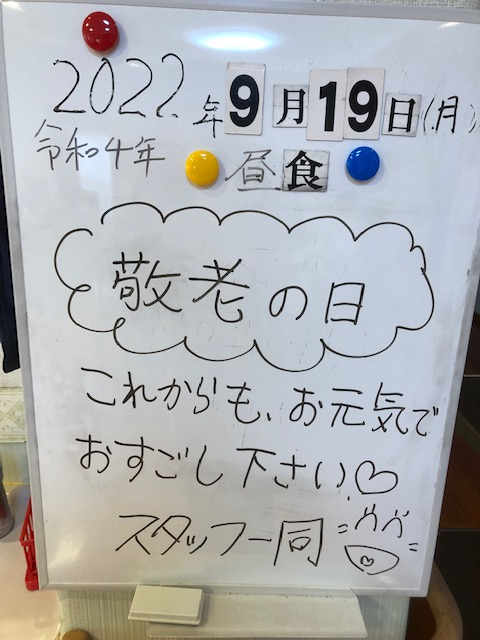 2022年9月19日(月)
令和4年 昼食
敬老の日
これからも、お元気で
おすごし下さい♡
スタッフ一同